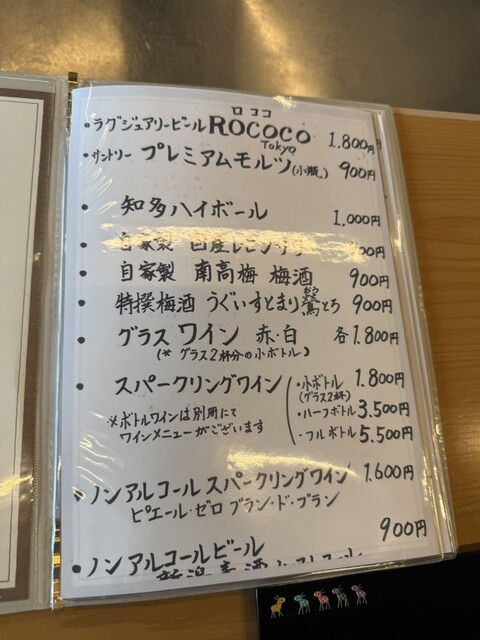 ロココ
・ラグジュアリービール ROCOCO Tokyo 1.800円
・サントリー プレミアムモルツ(小瓶) 900円
・知多ハイボール 1.000円
・自家製 国産レモンサワー 00円
・自家製 南高梅 梅酒 900円
・特撰梅酒 うぐいすとまり鶯とろ 900円
・グラスワイン 赤・白 各1.800円
(* グラス2杯分の小ボトル)
・スパークリングワイン
・小ボトル 1.800円
(グラス2杯)
・ハーフボトル 3.500円
・フルボトル 5.500円
※ボトルワインは別冊にて
ワインメニューがございます
・ノンアルコール スパークリングワイン 1.600円
ピエール・ゼロ ブラン・ド・ブラン
・ノンアルコールビール 900円